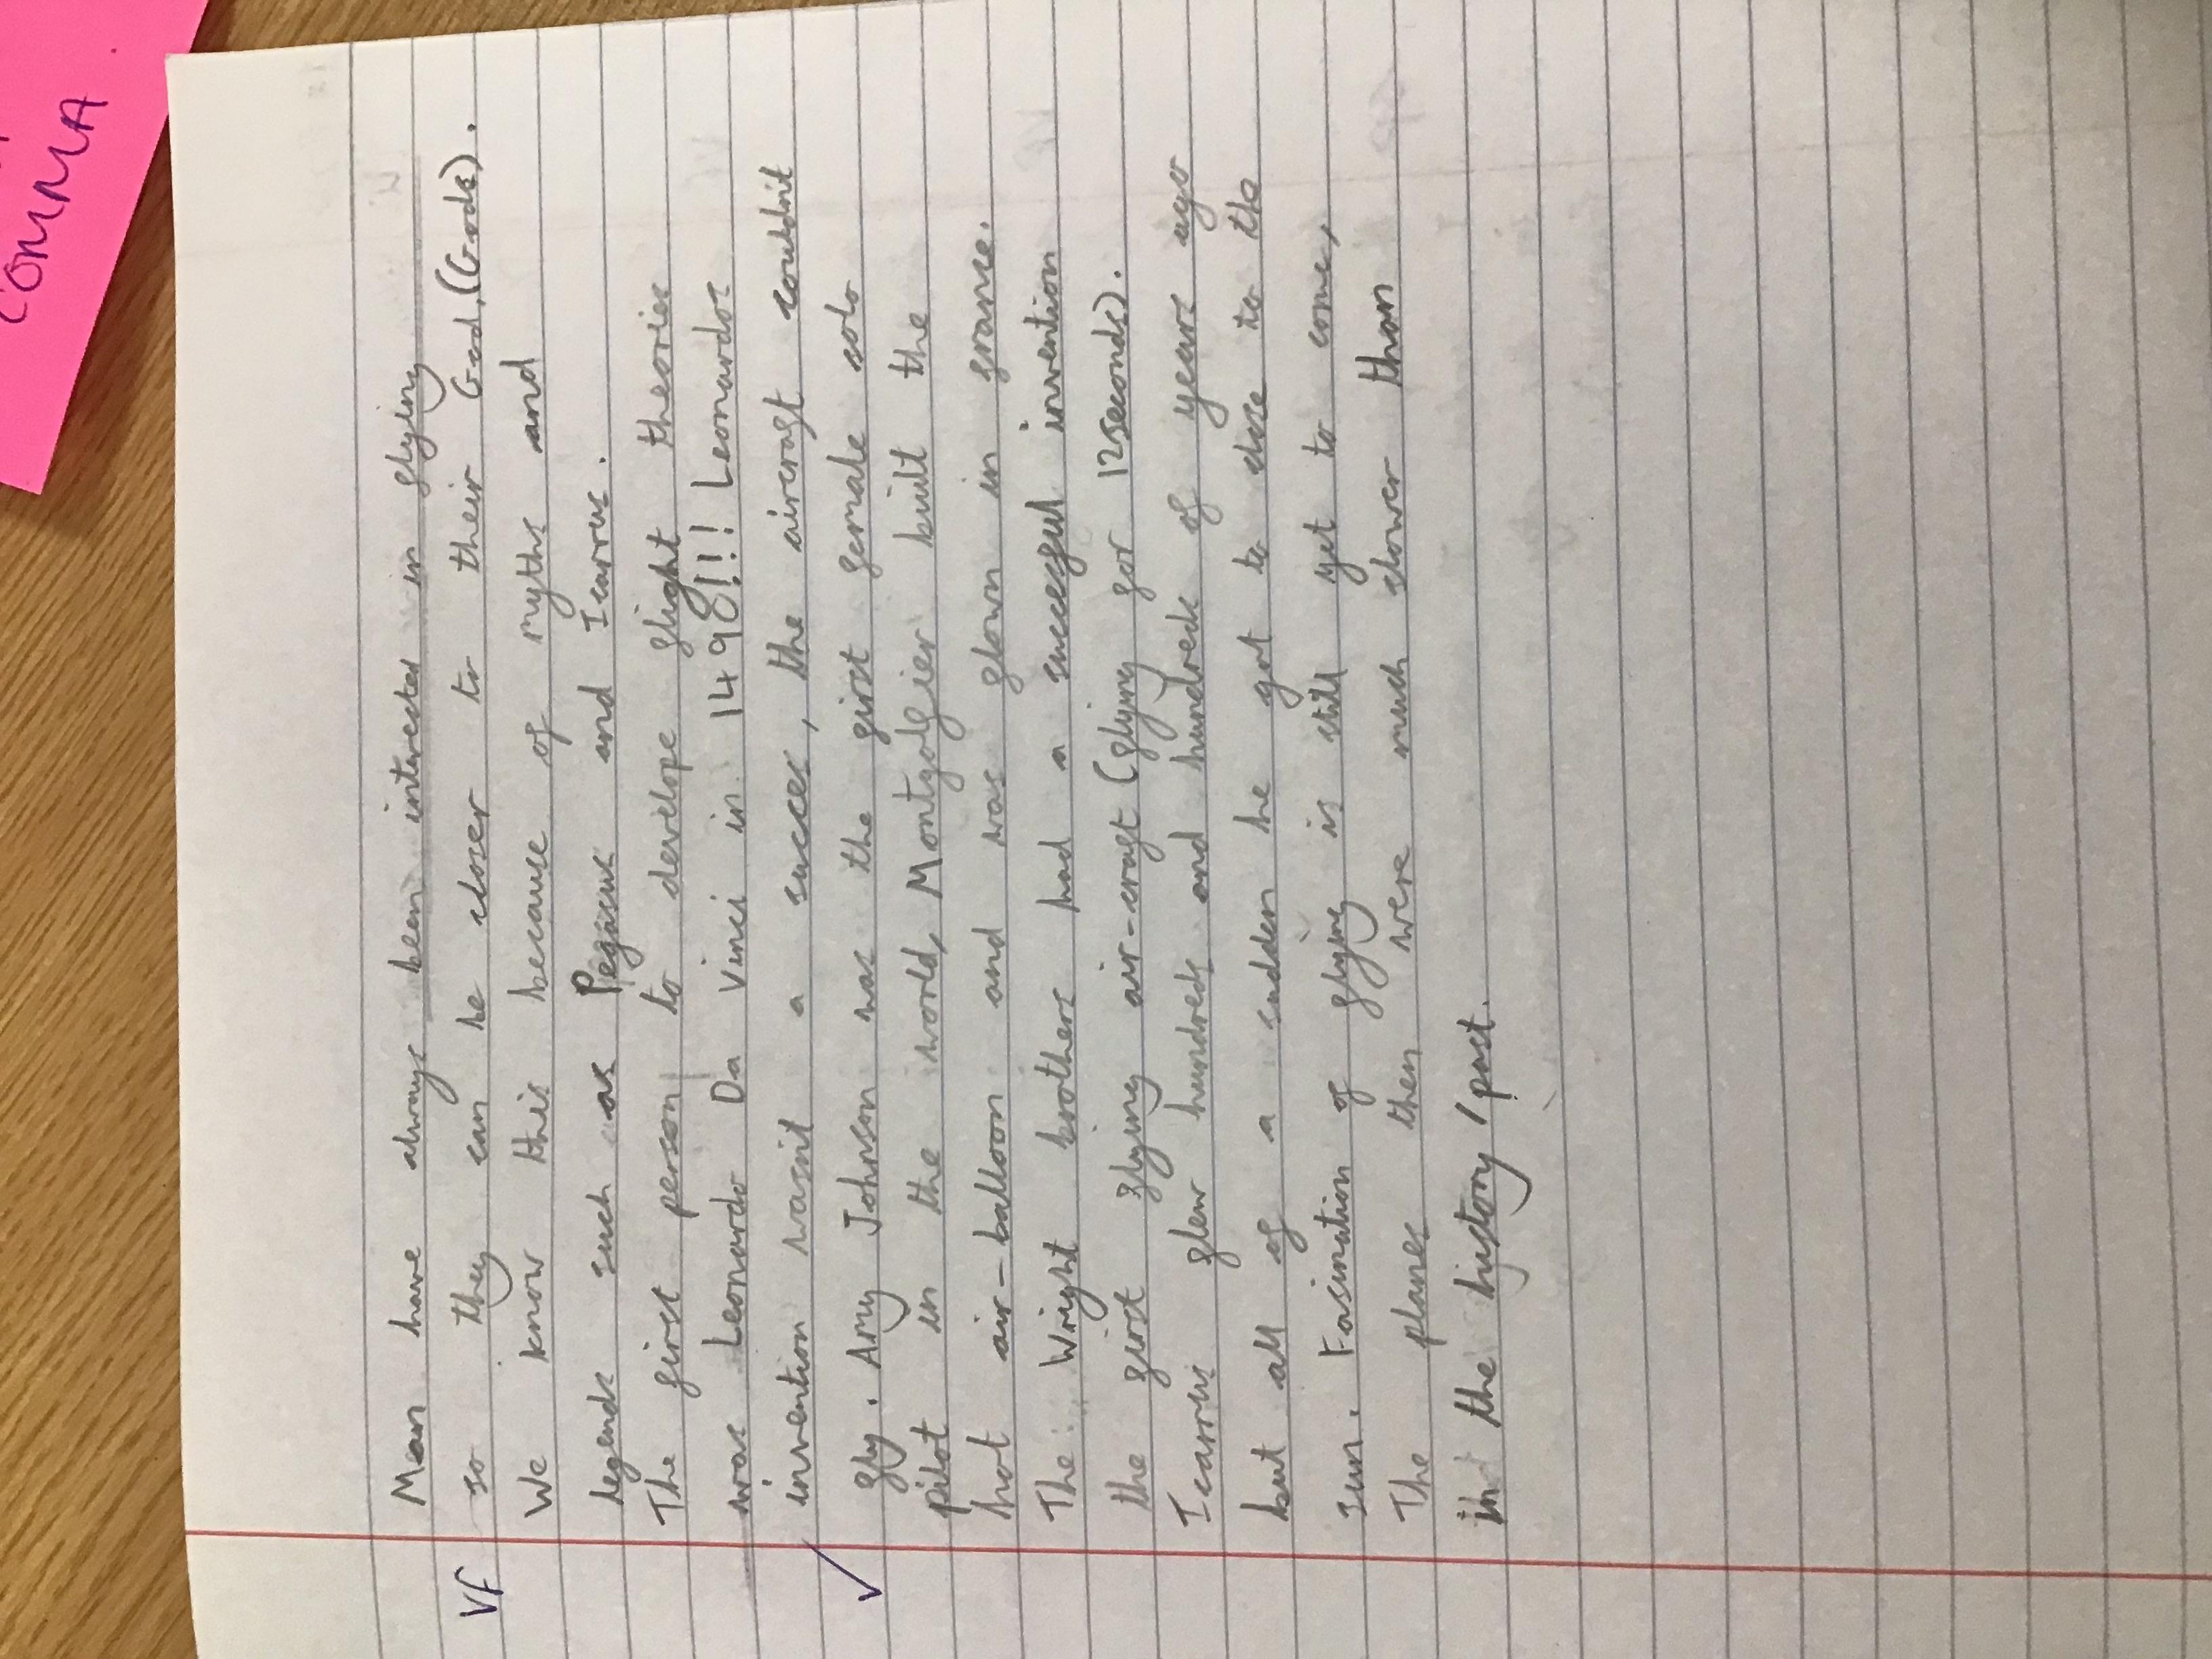 COMMA
Man have always been intrested in flying
VF so they can be closer to their God,(Gods).
We know this because of myths and
legends such as Pegasus and Icarrus.
The first person to develope flight theories
was Leonardo Da Vinci in 1490!!! Leonardos
invention wasint a succes, the aircraft couldnit
fly. Amy Johnson was the first female solo
pilot in the world, Montgolfier built the
hot air-balloon and was flown in france.
The Wright brothers had a successful invention
the first flying air-craft (flying for 12seconds).
Icarrus flew hundreds and hundreds of years ago
but all of a sudden he got to close to the
sun. Fasination of flying is still yet to come,
The planes then were much slower than
in the history/past.